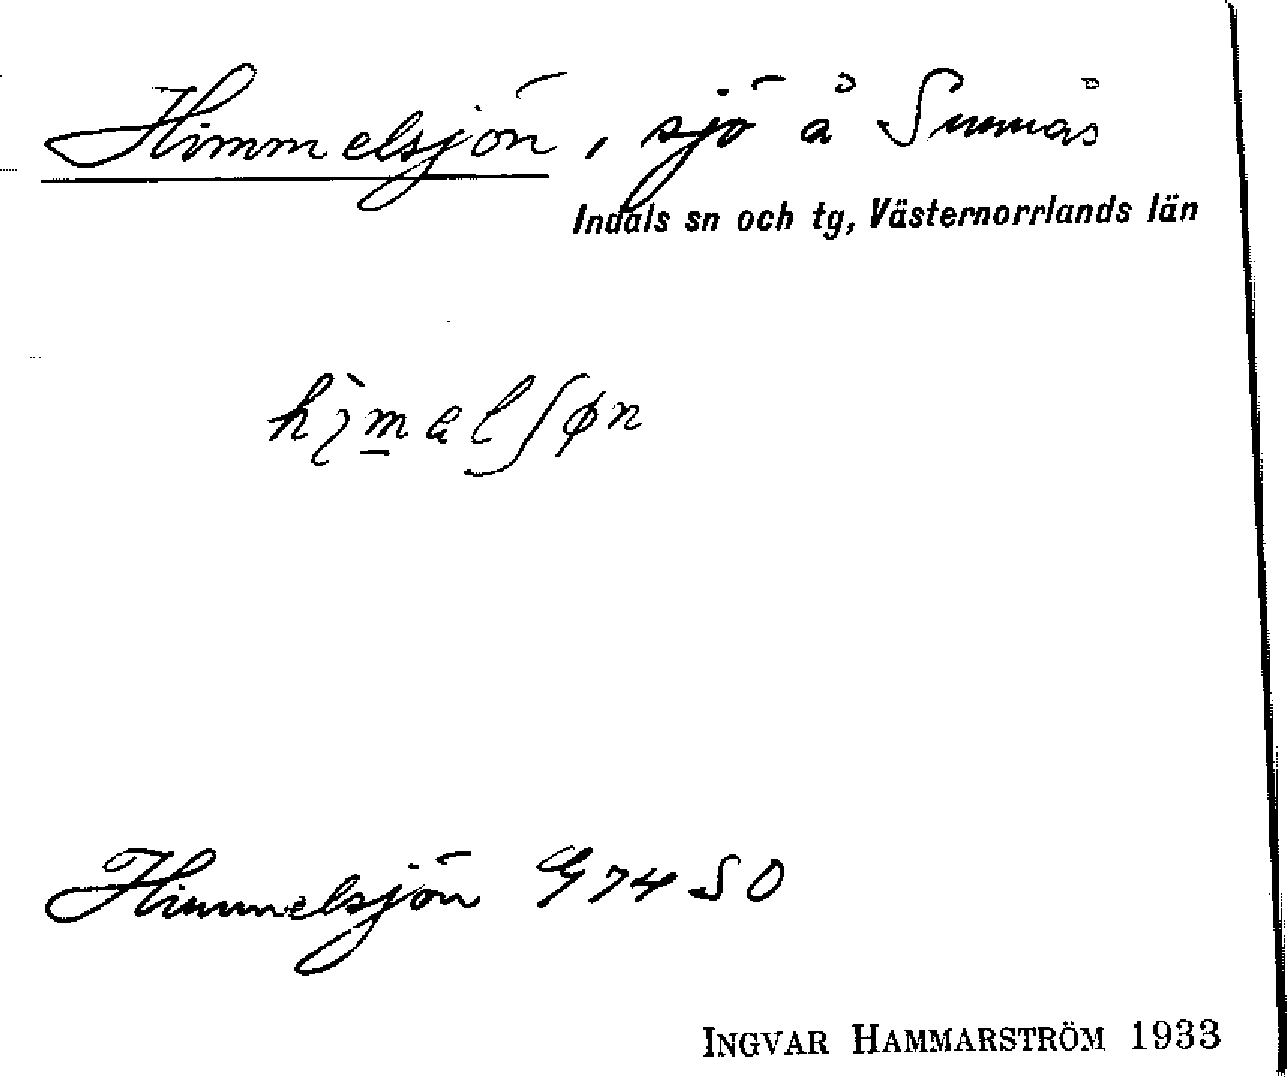 Himmelsjön, sjö å Sunnås
Indals sn och tg, Västernorrlands län
Himmelsjön G 74 SO
INGVAR HAMMARSTRÖM 1933